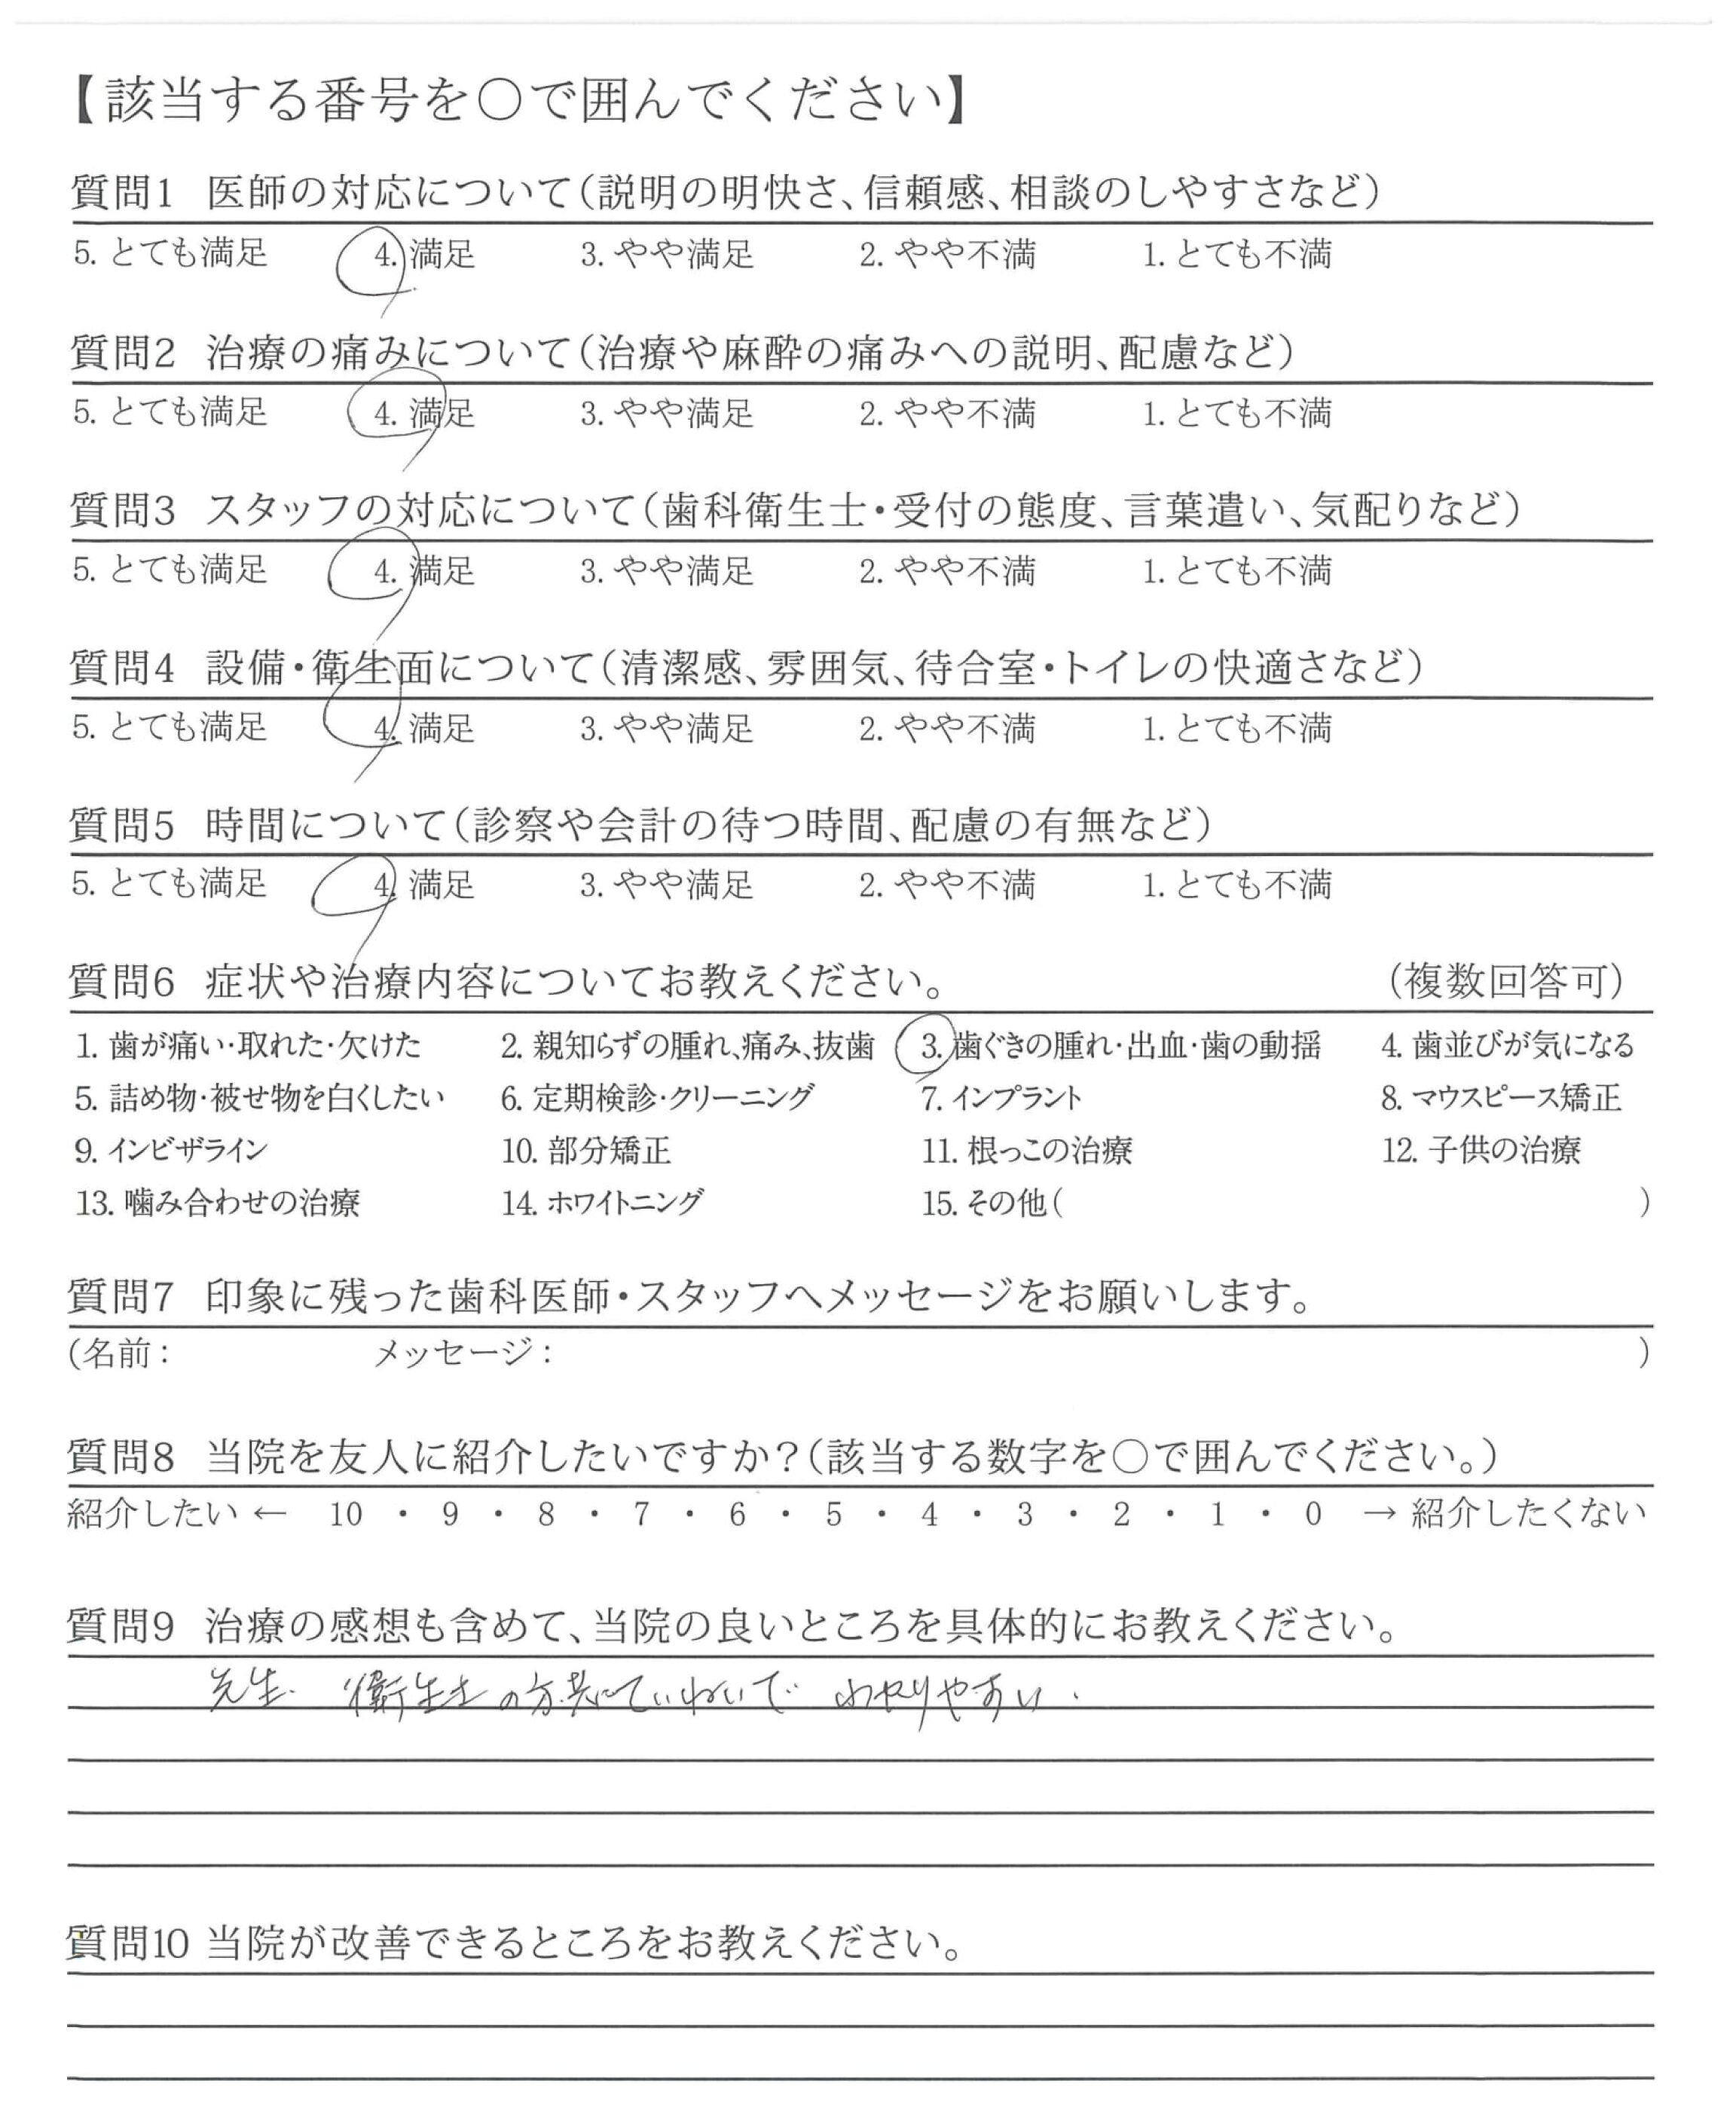 【該当する番号を○で囲んでください】
質問1 医師の対応について(説明の明快さ、信頼感、相談のしやすさなど)
5. とても満足 4. 満足 3. やや満足 2. やや不満 1. とても不満
質問2 治療の痛みについて(治療や麻酔の痛みへの説明、配慮など)
5. とても満足 4. 満足 3. やや満足 2. やや不満 1. とても不満
質問3 スタッフの対応について(歯科衛生士・受付の態度、言葉遣い、気配りなど)
5. とても満足 4. 満足 3. やや満足 2. やや不満 1. とても不満
質問4 設備・衛生面について(清潔感、雰囲気、待合室・トイレの快適さなど)
5. とても満足 4. 満足 3. やや満足 2. やや不満 1. とても不満
質問5 時間について(診察や会計の待つ時間、配慮の有無など)
5. とても満足 4. 満足 3. やや満足 2. やや不満 1. とても不満
質問6 症状や治療内容についてお教えください。 (複数回答可)
1. 歯が痛い・取れた・欠けた 2. 親知らずの腫れ、痛み、抜歯 3. 歯ぐきの腫れ・出血・歯の動揺 4. 歯並びが気になる
5. 詰め物・被せ物を白くしたい 6. 定期検診・クリーニング 7. インプラント 8. マウスピース矯正
9. インビザライン 10. 部分矯正 11. 根っこの治療 12. 子供の治療
13. 噛み合わせの治療 14. ホワイトニング 15. その他( )
質問7 印象に残った歯科医師・スタッフへメッセージをお願いします。
(名前: メッセージ: )
質問8 当院を友人に紹介したいですか?(該当する数字を○で囲んでください。)
紹介したい ← 10 ・ 9 ・ 8 ・ 7 ・ 6 ・ 5 ・ 4 ・ 3 ・ 2 ・ 1 ・ 0 → 紹介したくない
質問9 治療の感想も含めて、当院の良いところを具体的にお教えください。
先生、衛生士の方共にていねいで わかりやすい.
質問10 当院が改善できるところをお教えください。